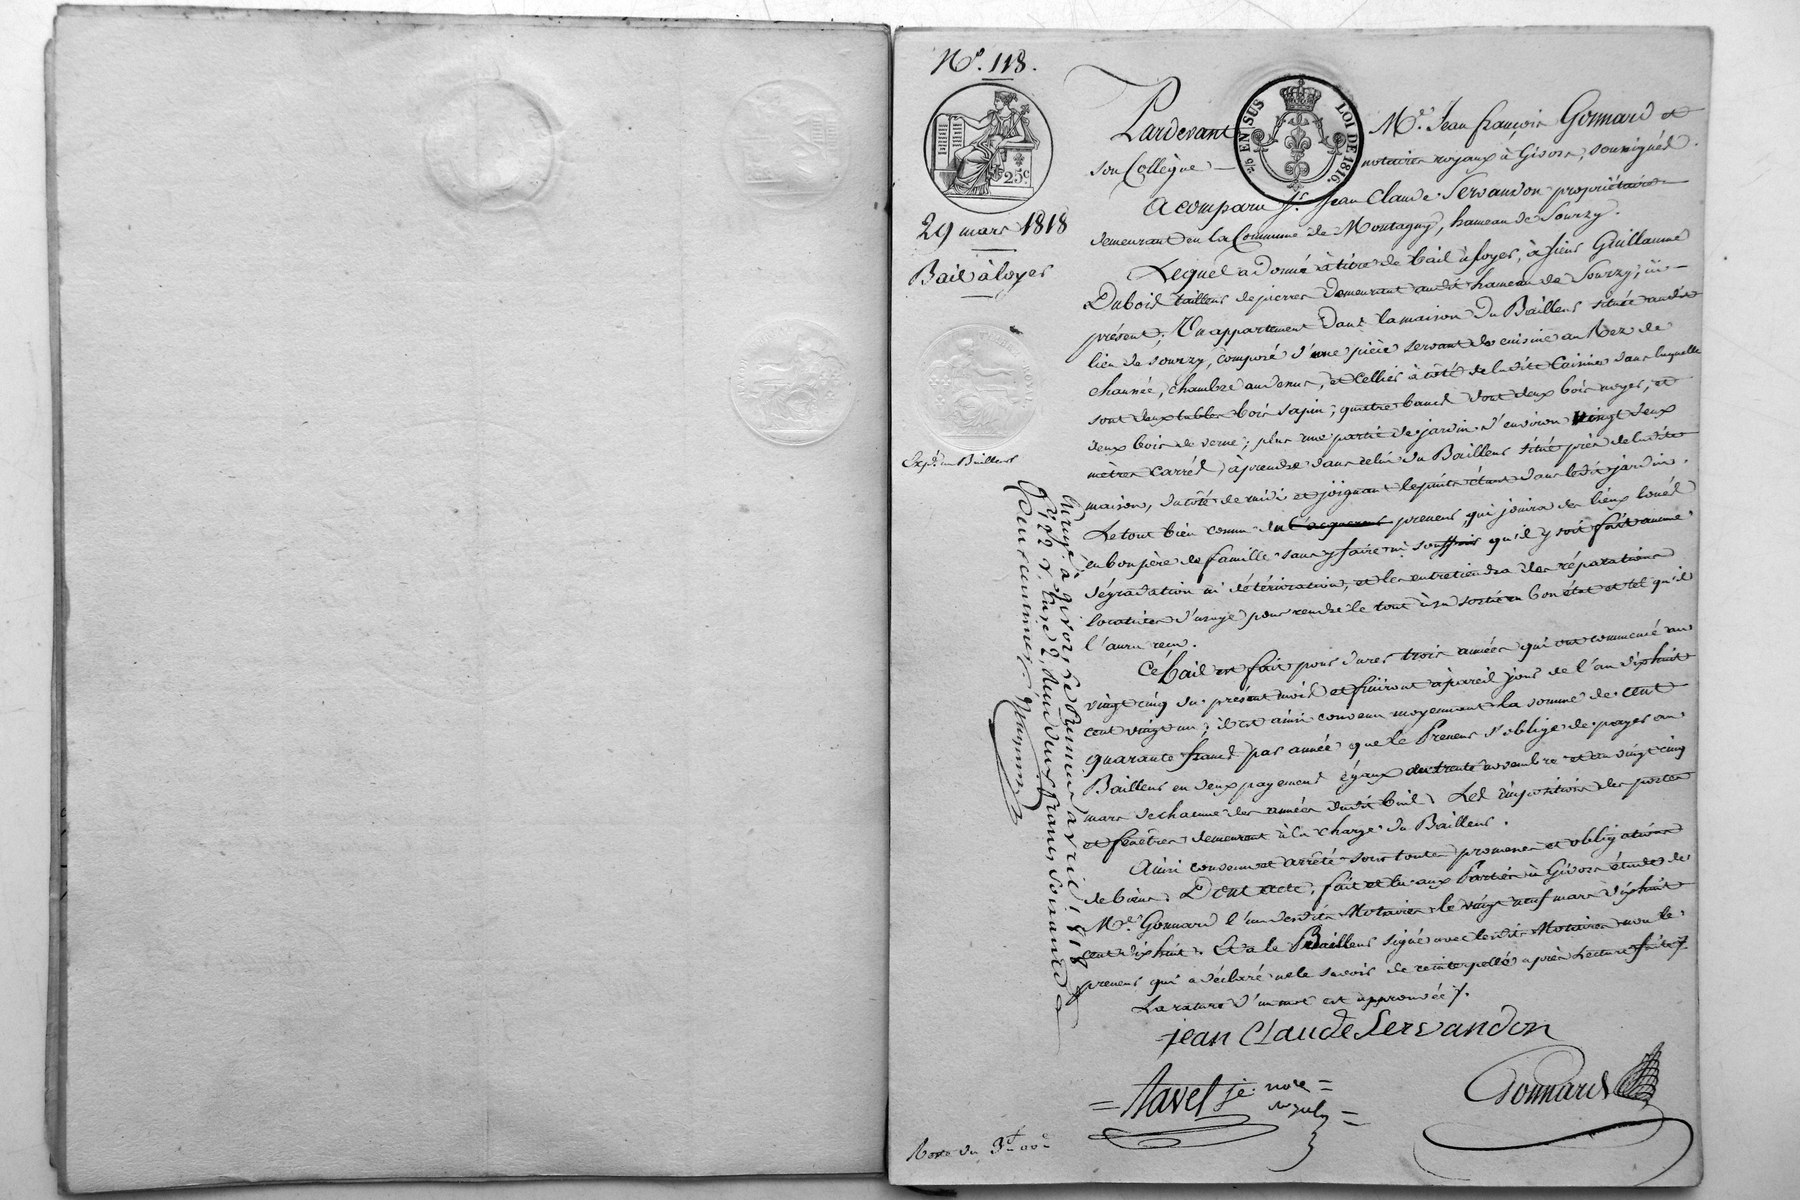 N.° 118.
25c
29 mars 1818
Bail à loyer
Exp.on Bailleur
EN SUS LOI DE 1816.
Pardevant M.e Jean françois Gonnard et
son Collègue notaires royaux à Givors, soussignés.
A comparu S.r Jean Claude Servandon propriétaire
demeurant en la Commune de Montagny, hameau de Sourzy.
Lequel a donné à titre de bail à loyer, à sieur Guillaume
Dubois tailleur de pierres demeurant audit hameau de Sourzy, ici
présent, Un appartement dans la maison du Bailleur située audit
lieu de Sourzy, composé d'une pièce servant de cuisine au Rez de
chaussée, chambre au dessus, et cellier à côté de ladite Cuisine dans laquelle
sont deux tables bois sapin, quatre bancs dont deux bois noyer, et
deux bois de verne; plus une partie de jardin d'environ vingt deux
mètres carrés, à prendre dans celui du Bailleur situé près de ladite
maison, du côté de midi et joignant le puits étant dans ledit jardin.
Le tout bien connu du l'acquereur preneur, qui jouira des lieux loués
en bon père de famille sans y faire ni souffrir qu'il y soit fait aucune
dégradation ni détérioration, et les entretiendra des réparations
locatives d'usage pour rendre le tout à sa sortie en bon état et tel qu'il
l'aura reçu.
Ce bail est fait pour durer trois années qui ont commencé au
vingt cinq du présent mois et finiront à pareil jour de l'an dixhuit
cent vingt un; il est ainsi convenu moyennant la somme de cent
quarante francs par année que le Preneur s'oblige de payer au
Bailleur en deux payemens égaux des trente novembre et au vingt cinq
mars de chacune des années dudit bail. Les impositions des portes
et fenêtres demeurant à la charge du Bailleur.
Ainsi convenu et arrêté sous toutes promesses et obligations
de biens. Dont acte, fait et lu aux Parties à Givors étude de
M.e Gonnard l'un desdits Notaires le vingt neuf mars dixhuit
cent dixhuit. Et a le Bailleur signé avec lesdits Notaires non le
preneur qui a déclaré ne le savoir de ce interpellé après Lecture faite.
La rature d'un mot est approuvée.
jean Claude Servandon
Tavel je. nore
Gonnard
Enregé à givors le Premier avril 1818
f° 22 r. case 2, deux francs soixante